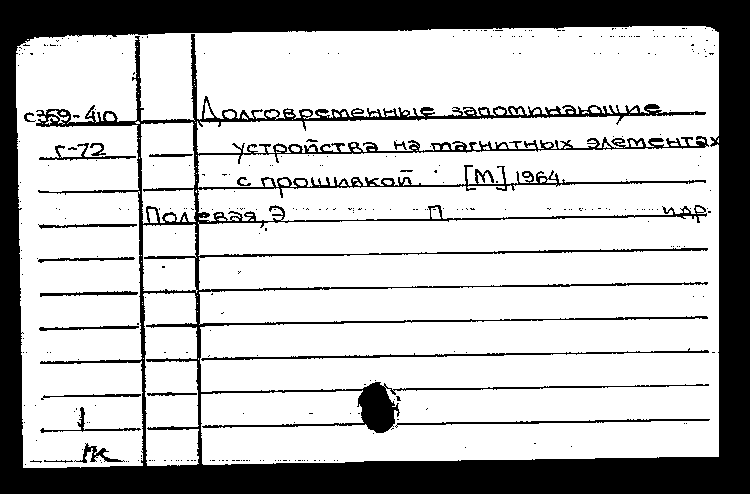 с359-410 Долговременные запоминающие
г-72 устройства на магнитных элементах
с прошивкой. [М.], 1964.
Полевая, Э П и др.
1